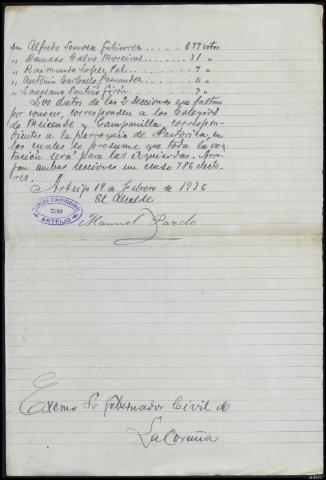 " Alfredo Somoza Gutierrez ..... 877 votos
" Dámaso Calvo Moreiras ..... 31 "
" Raimundo Lopez Pol ..... 7 "
" Antonio Fernandez ..... "
" Santeiro Girón ..... 7 "
Los datos de las 2 secciones que faltan
por conocer, corresponden a los Colegios
de y Campanilla, correspon-
dientes a la parroquia de Pastoriza, en
los cuales se presume que toda la vo-
tación será para las izquierdas. Arro-
jan ambas secciones un censo 786 electo-
res.
Arteijo 19 de Febrero de 1936
El Alcalde
ALCALDIA CONSTITUCIONAL
DE
ARTEIJO
Manuel Pardo
Excmo Sr Gobernador Civil de
La Coruña